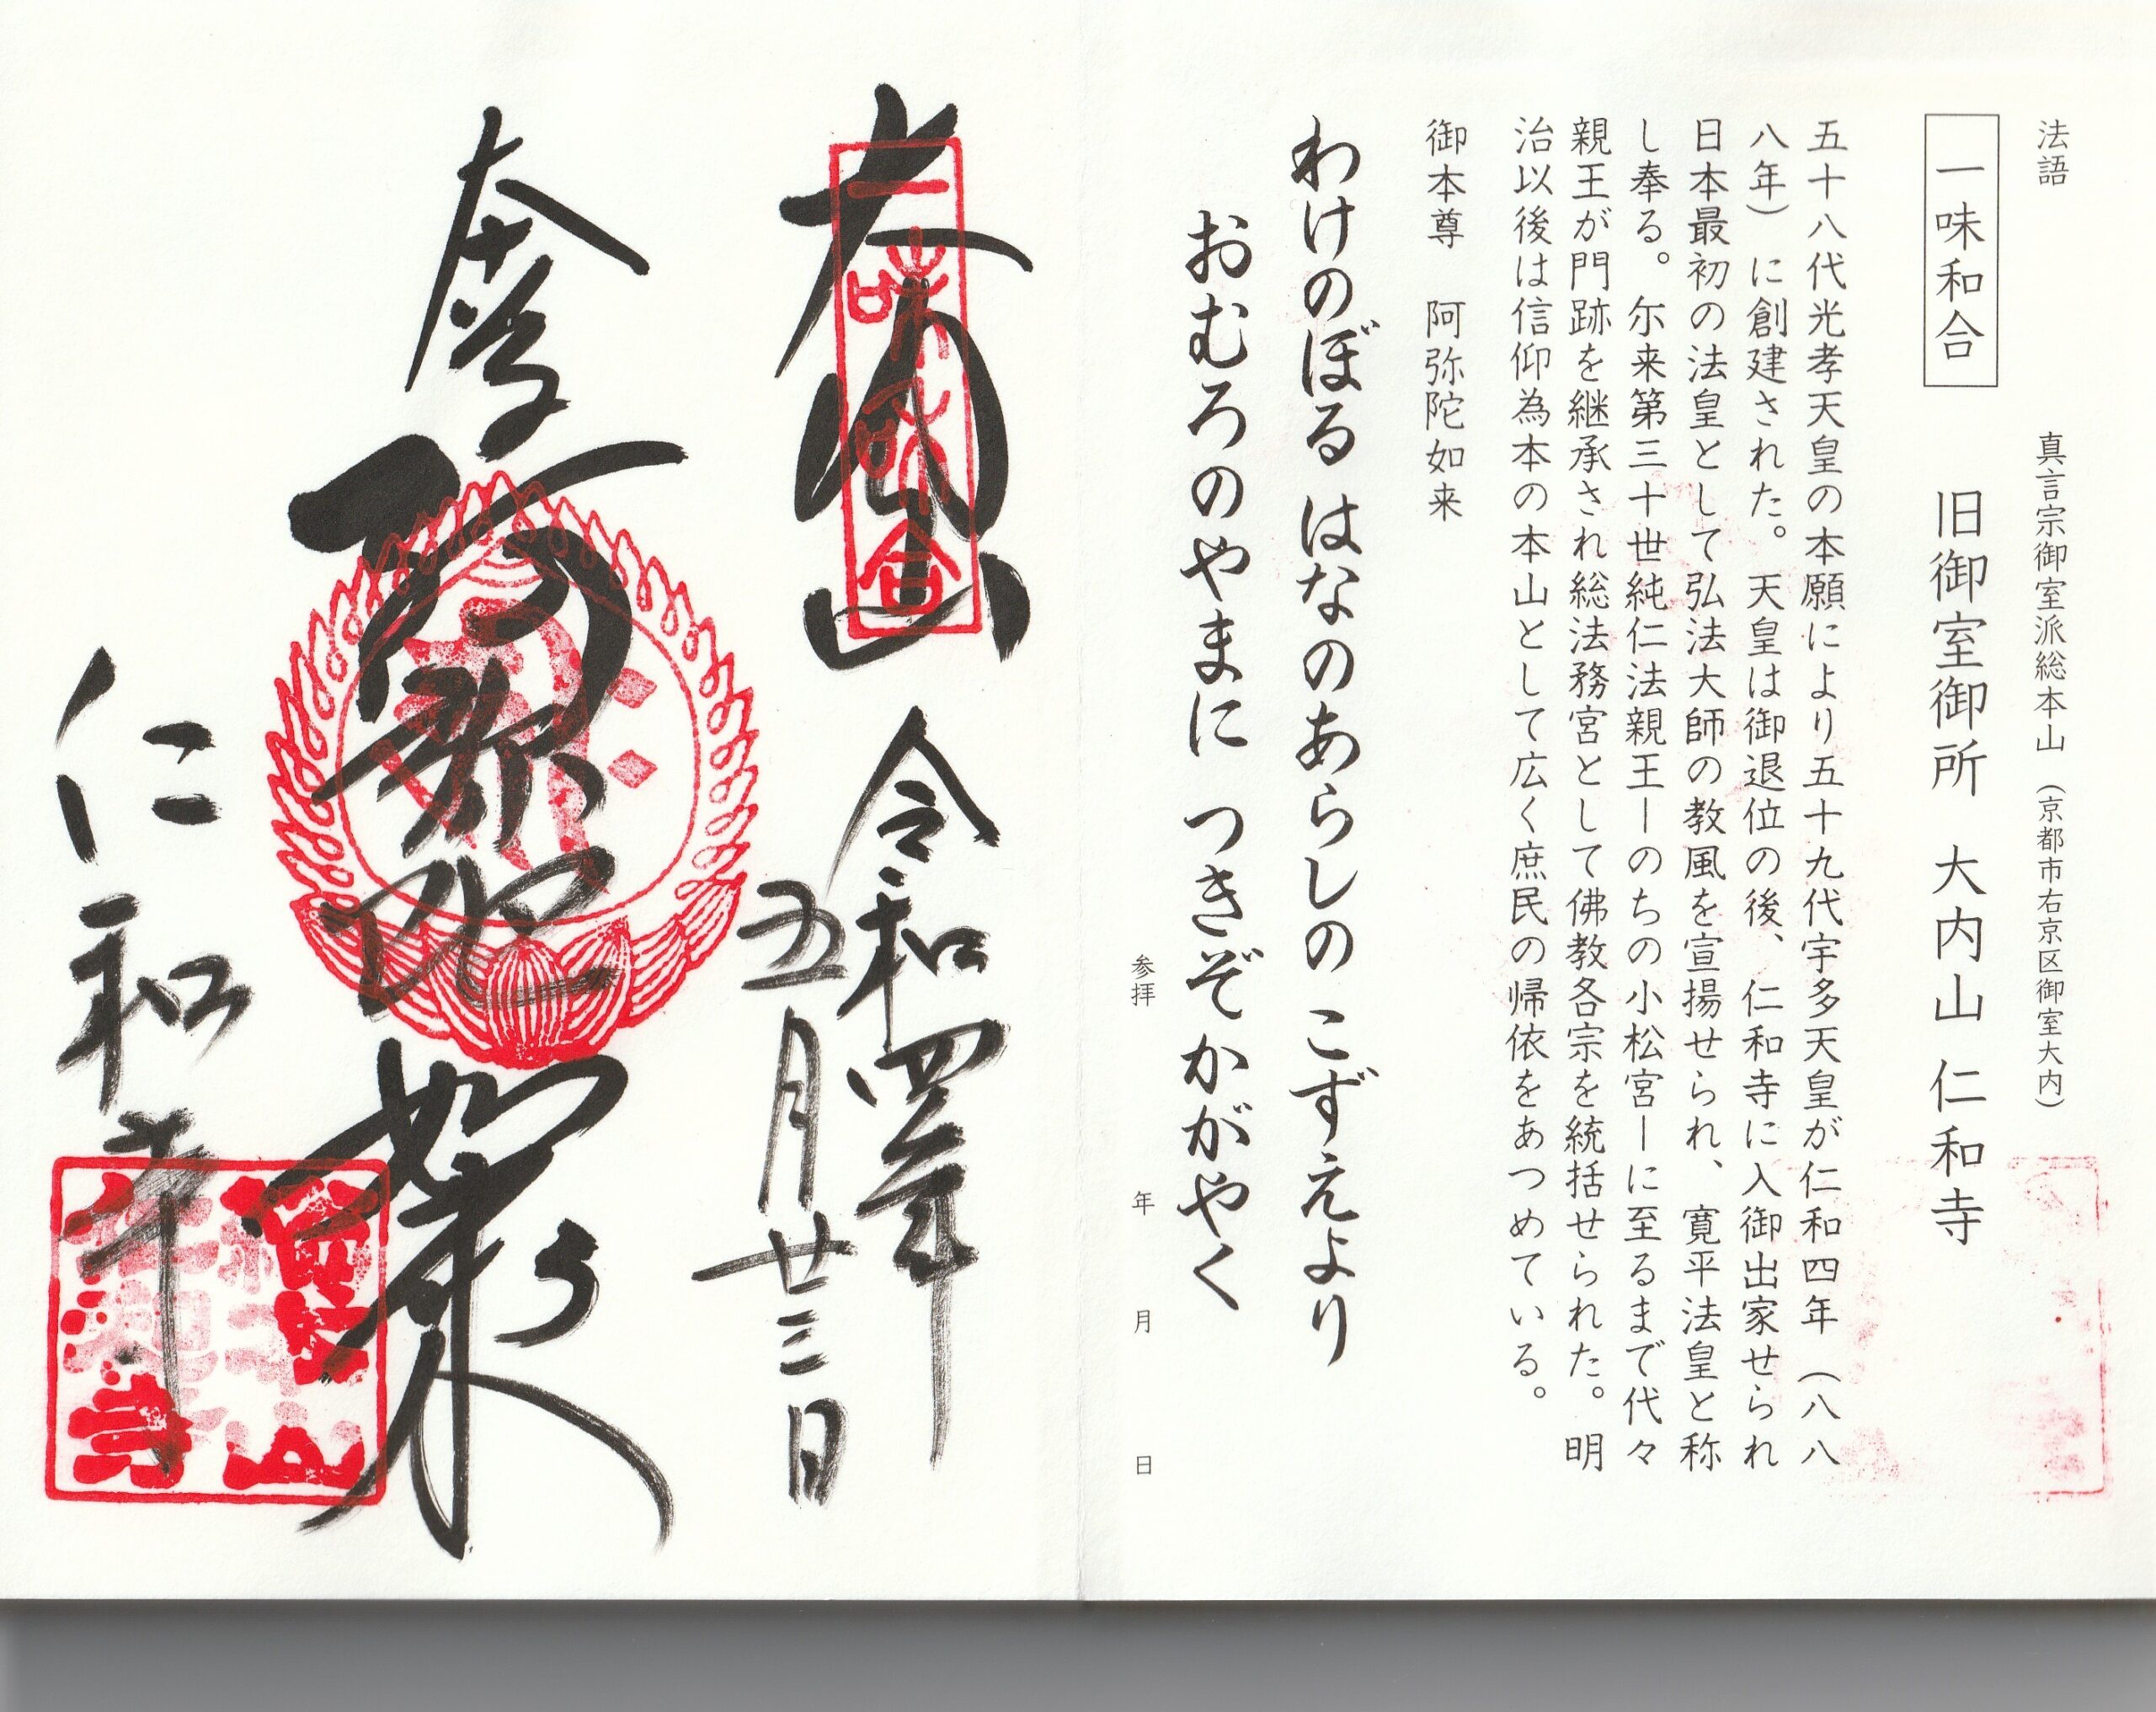 法語
一味和合
真言宗御室派総本山（京都市右京区御室大内）
旧御室御所 大内山 仁和寺
五十八代光孝天皇の本願により五十九代宇多天皇が仁和四年（八八
八年）に創建された。天皇は御退位の後、仁和寺に入御出家せられ
日本最初の法皇として弘法大師の教風を宣揚せられ、寛平法皇と称
し奉る。尓来第三十世純仁法親王ーのちの小松宮ーに至るまで代々
親王が門跡を継承され総法務宮として佛教各宗を統括せられた。明
治以後は信仰為本の本山として広く庶民の帰依をあつめている。
御本尊 阿弥陀如来
わけのぼる はなのあらしの こずえより
おむろのやまに つきぞかがやく
参拝 年 月 日
一味和合
令和四年
五月廿三日
奉拝
阿弥陀如来
仁和寺